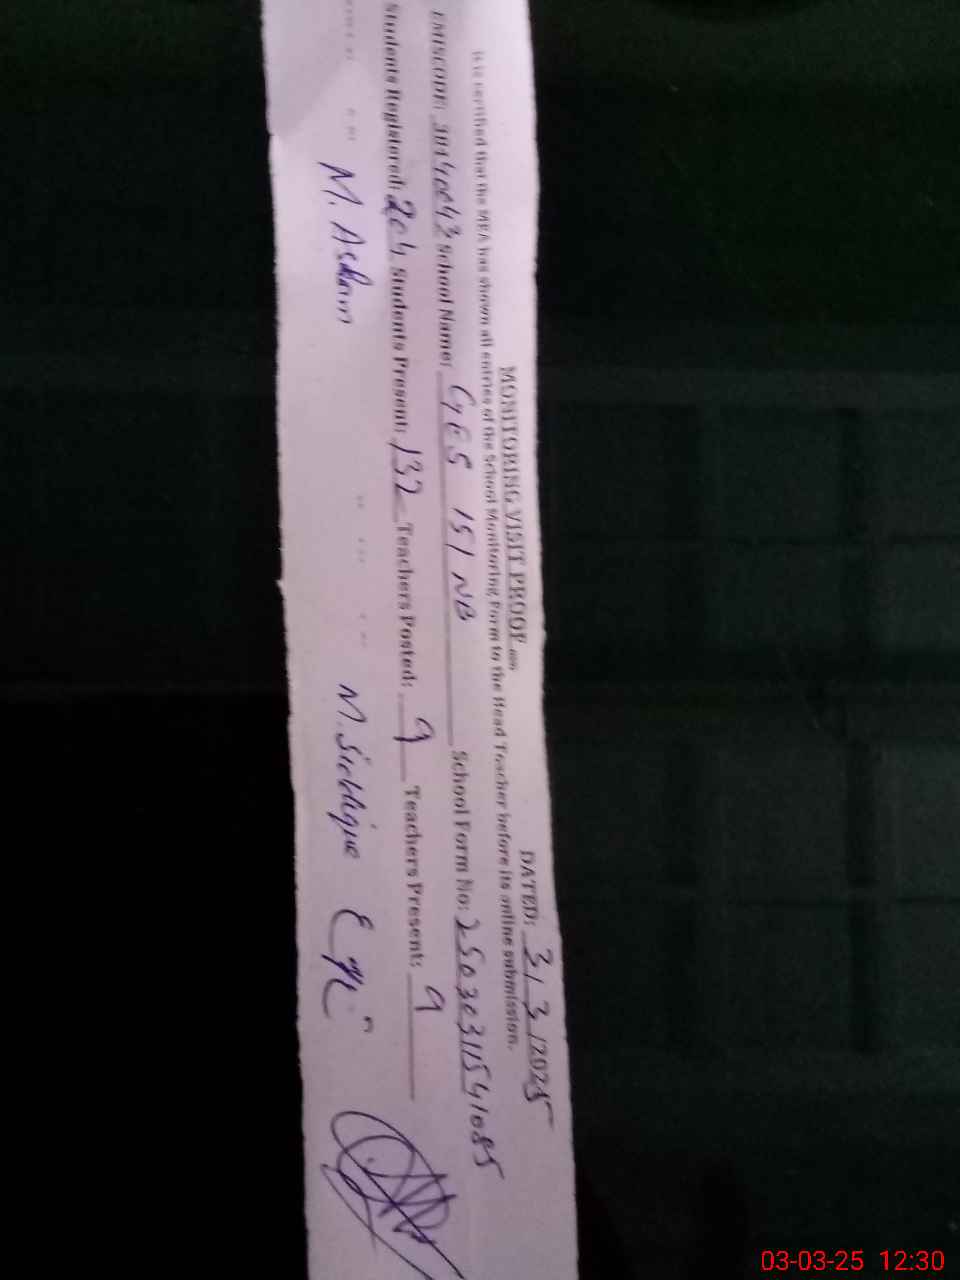 MONITORING VISIT PROOF DATED: 3/3/2025
It is certified that the MEA has shown all entries of the School Monitoring Form to the Head Teacher before its online submission.
EMISCODE: School Name: GES 151 NB School Form No: 2503031541085
Students Registered: 204 Students Present: 132 Teachers Posted: 9 Teachers Present: 9
M. Aslam M. Siddique
03-03-25 12:30